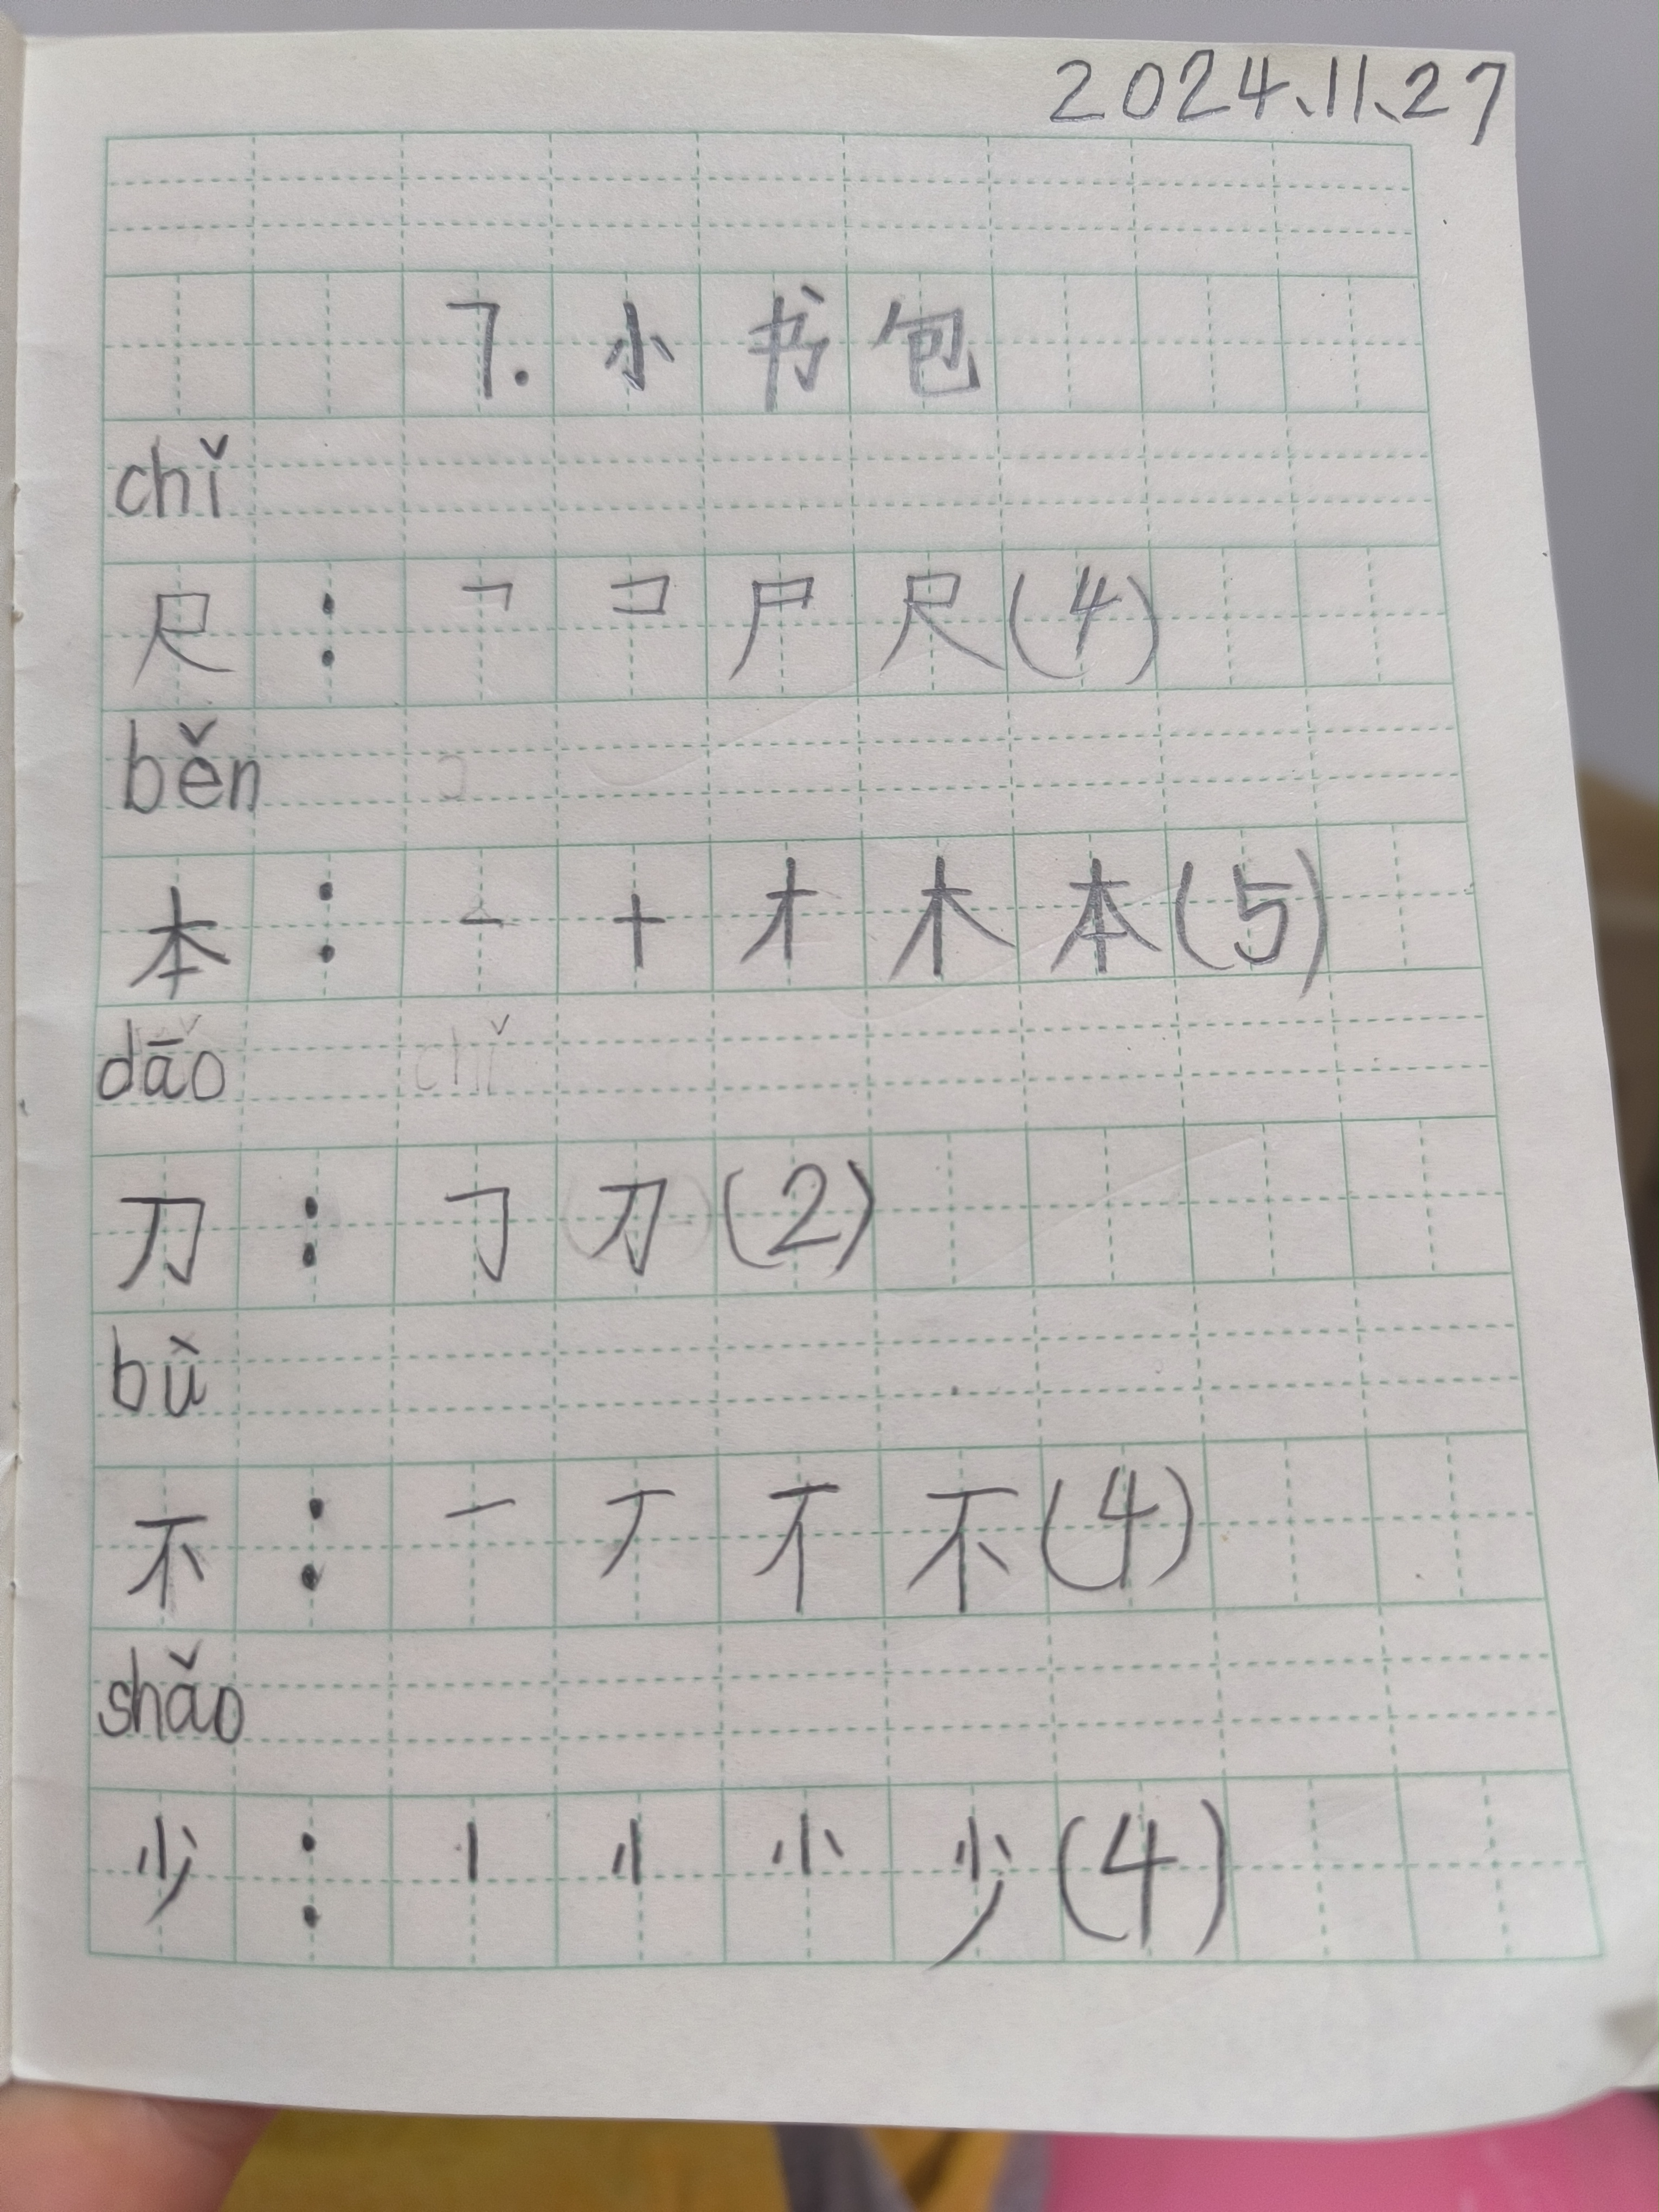 2024.11.27
7. 小书包
chǐ
尺：𠃍 コ 尸 尺(4)
běn
本：一 十 才 木 本(5)
dāo chǐ
刀：𠃌 刀(2)
bù
不：一 丆 不 不(4)
shǎo
少：丨 小 少(4)